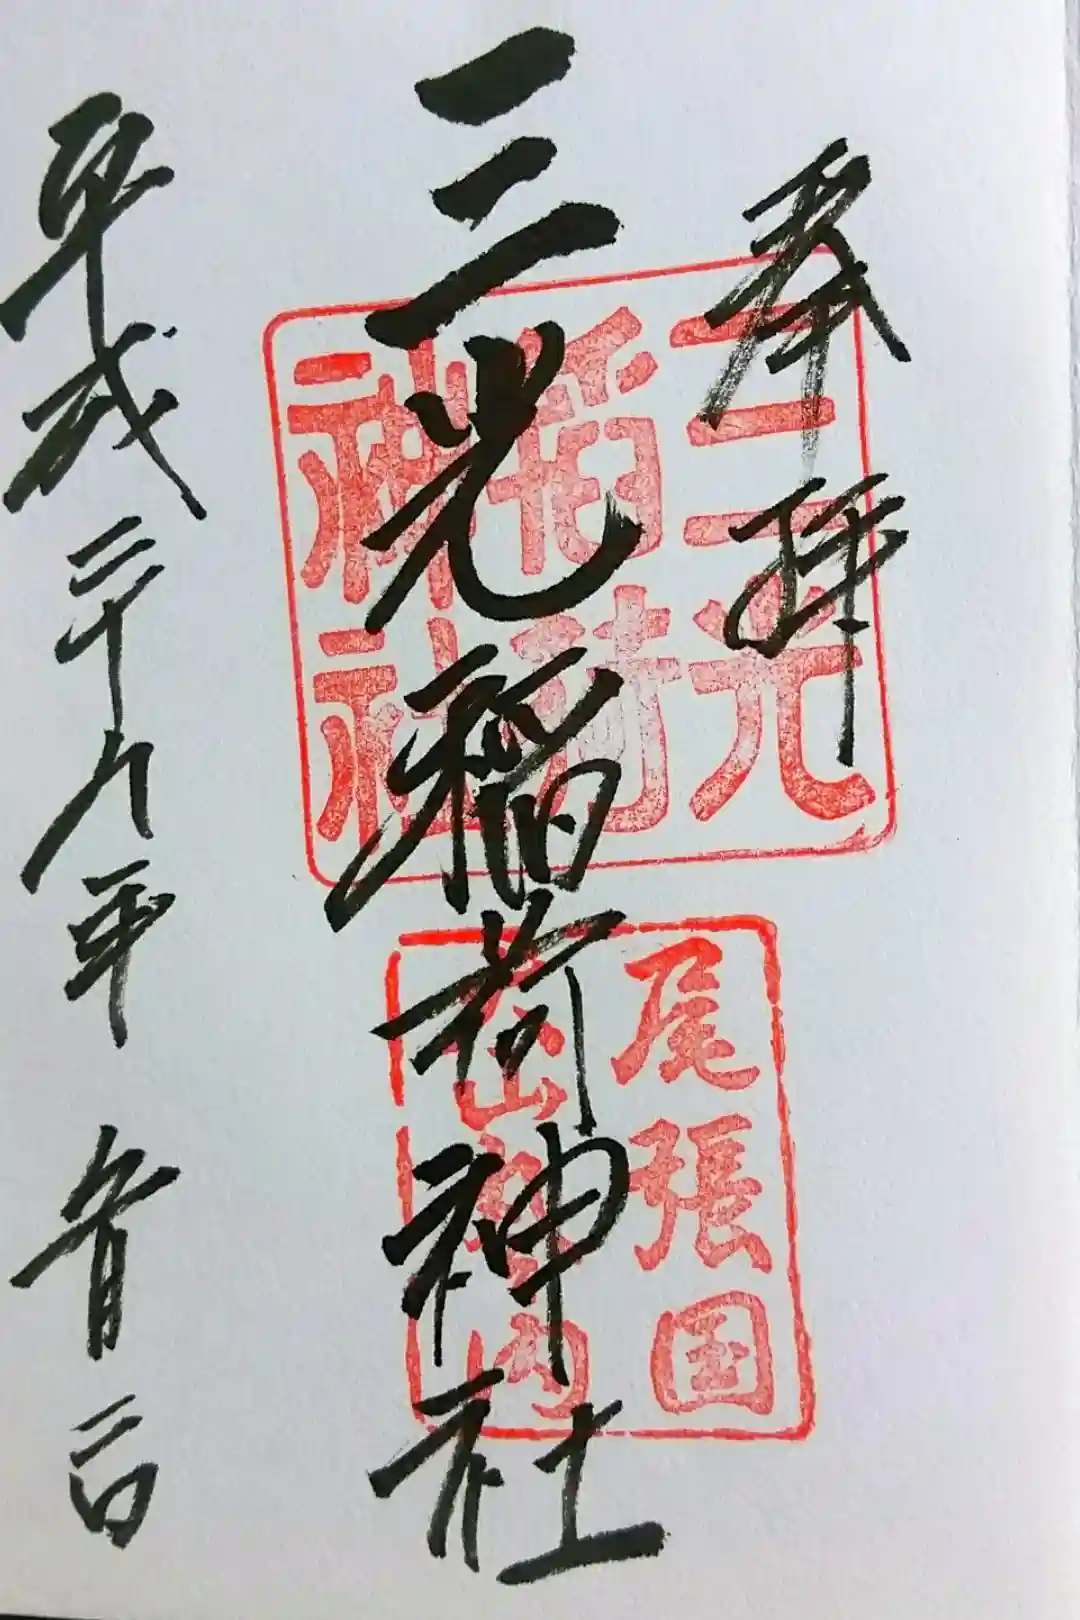 奉拝
三光
稲荷
神社
三光稲荷神社
尾張国
犬山城内
平成二十九年 月二日